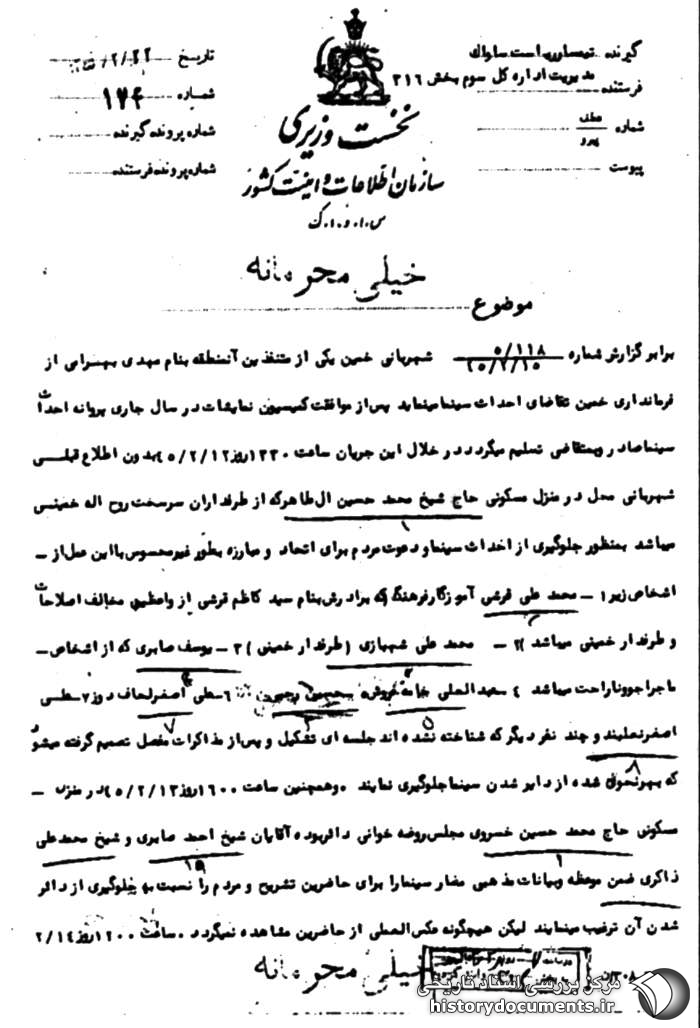 گیرنده تیمسار ریاست ساواک
مدیریت اداره کل سوم بخش ۳۱۶
فرستنده
شماره عطف
پیرو
پیوست
تاریخ
شماره ۱۷۴
شماره پرونده گیرنده
شماره پرونده فرستنده
نخست وزیری
سازمان اطلاعات و امنیت کشور
س.ا.و.ا.ک
خیلی محرمانه
موضوع
برابر گزارش شماره ۵/۱۱۸ شهربانی خمین یکی از متنفذین آنمنطقه بنام مهدی بهرامی از
فرمانداری خمین تقاضای احداث سینما مینماید پس از موافقت کمیسیون نمایشات در سال جاری پروانه احداث
سینما صادر و بمتقاضی تسلیم میگردد در خلال این جریان ساعت ۱۳۳۰ روز ۴۵/۲/۱۲ بدون اطلاع قبلی
شهربانی محل در منزل مسکونی حاج شیخ محمد حسین ال طاهر که از طرفداران سرسخت روح اله خمینی
میباشد بمنظور جلوگیری از احداث سینما و دعوت مردم برای اتحاد و مبارزه بطور غیر محسوس با این عمل از -
اشخاص زیر ۱ - محمد علی قرشی آموزگار فرهنگ که برادرش بنام سید کاظم قرشی از واعظین مخالف اصلاحات
و طرفدار خمینی میباشد ۲ - محمد علی شهبازی (طرفدار خمینی) ۳ - یوسف صابری که از اشخاص -
ماجراجو و ناراحت میباشد ۴ سعید العلی ۶ - علی اصغر لحاف دوز ۷ - علی
اصغر نعلبند و چند نفر دیگر که شناخته نشده اند جلسه ای تشکیل و پس از مذاکرات مفصل تصمیم گرفته میشود
که بهر نحوی شده از دایر شدن سینما جلوگیری نمایند. همچنین ساعت ۱۶۰۰ روز ۴۵/۲/۱۳ در منزل -
مسکونی حاج محمد حسین خسروی مجلس روضه خوانی دائر بوده آقایان شیخ احمد صابری و شیخ محمد علی
ذاکری ضمن موعظه و بیانات مذهبی مضار سینما را برای حاضرین تشریح و مردم را نسبت به جلوگیری از دائر
شدن آن ترغیب مینمایند لیکن هیچگونه عکس العملی از حاضرین مشاهده نمیگردد. ساعت ۱۲۰۰ روز ۲/۱۴
خیلی محرمانه
مرکز بررسی اسناد تاریخی
historydocuments.ir